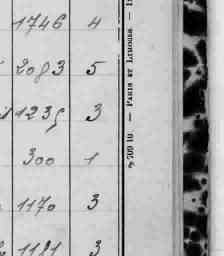 1746 4
2083 5
1235 3
300 1
1170 3
1121 3
— PARIS ET LIMOGES —